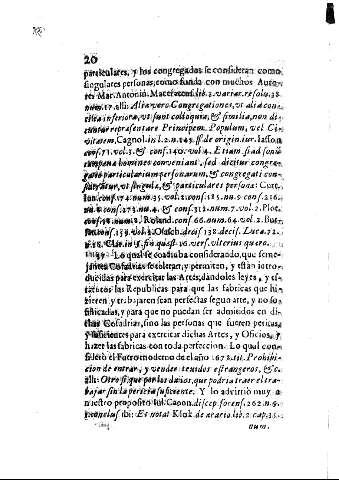 20
particulares, y los congregados se consideran como
singulares personas; como funda con muchos Auto-
res Mar. Antonin. Maceratens. lib. 3. variar. resolu. 38.
num. 17. alli: Altæ vero Congregationes, ut alia con-
cilia inferiora, ut sunt colloquia, & similia, non di-
cuntur representare Principem, Populum, vel Ci-
vitatem, Cagnol. in l. 2. n. 149. ff. de origin. iur. Iasson.
conf. 71. vol. 3. & conf. 140. vol. 4. Etiam si ad sonum
campana homines conveniant, sed dicitur congre-
gatio particularium personarum, & congregati con-
siderantur, ut singula, & particulares persona:
lon. conf. 174. num. 35. vol. 2. conf. 185. nu. 9 conf. 236
nu. 2. conf. 273. num. 4. & conf. 312. num. 7. vol. 2.
conf. num. 2. Roland. conf. 66. num. 64. vol. 2.
conf. 139. vol. 2. Osasch. decis. 132 decif. Luca 72.
n. 18. Clar. in §. fin quæst. 16. vers. ulterius quæro.
Lo qual se coadiuba considerando, que seme-
jantes Cofadrias se toleran, y permiten, y están intro-
ducidas para exercitar las Artes, dandoles leyes, y es-
tatutos las Republicas para que las fabricas que hi-
zieren y trabajaren sean perfectas segun arte, y no so-
fisticadas, y para que no puedan ser admitidos en di-
chas Cofadrias, sino las personas que fueren peritas,
y suficientes para exercitar dichas Artes, y Oficios, y
hazer las fabricas con toda perfeccion. Lo qual con-
sideró el Fuero moderno de el año 1678. tit. Prohibi-
cion de entrar, y vender texidos estrangeros, & c.
alli: Otro si que por los daños, que podria traer el tra-
bajar sin la pericia suficiente. Y lo advirtió muy a
nuestro proposito Iul. Capon. discep. forens. 262. n. 9.
ibi: Es notat Klok de ærario lib. 2. cap. 35.
num.